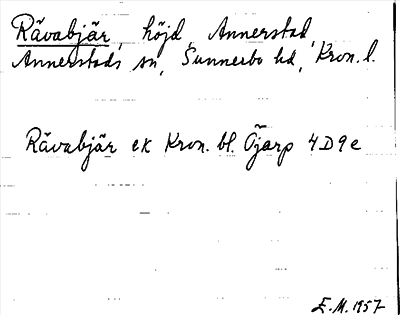 Rävabjär, höjd, Annerstad,
Annerstads sn, Sunnerbo hd, Kron. l.
Rävabjär ek Kron. bl. Öjarp 4D9e
E.M. 1957